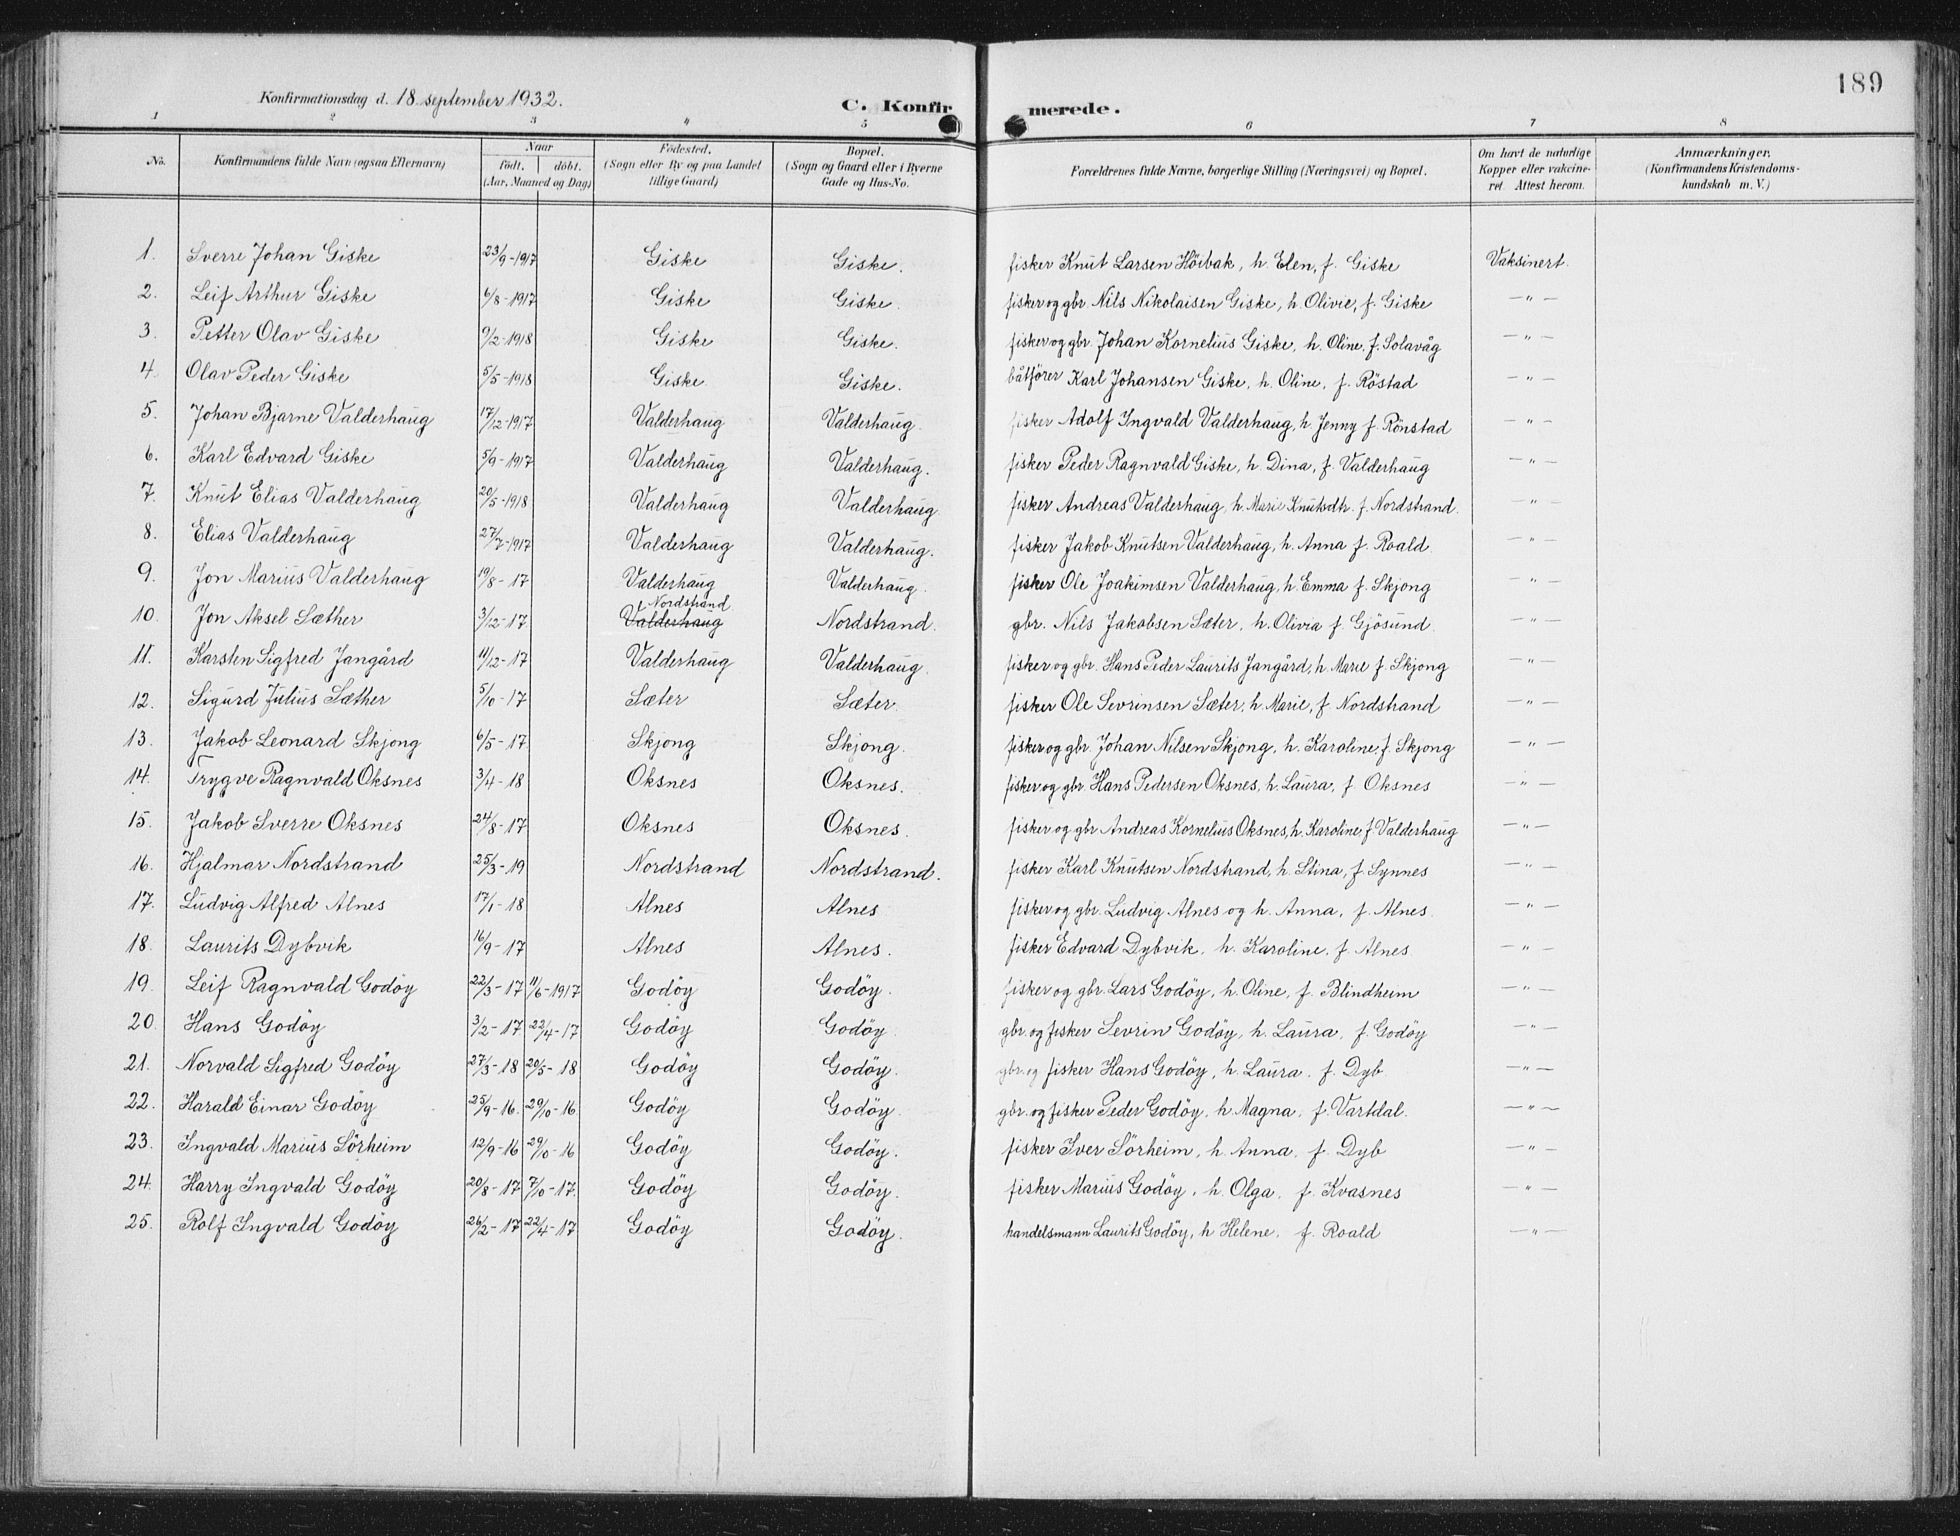 189
Konfirmationsdag d. 18. september 1932.
C. Konfirmerede.
1 2 3 4 5 6 7 8
No. Konfirmandens fulde Navn (ogsaa Efternavn) Naar født. døbt. (Aar, Maaned og Dag) Fødested. (Sogn eller By og paa Landet tillige Gaard) Bopæl. (Sogn og Gaard eller i Byerne Gade og Hus-No. Forældrenes fulde Navne, borgerlige Stilling (Næringsvei) og Bopæl. Om havt de naturlige Kopper eller vakcineret. Attest herom. Anmærkninger. (Konfirmandens Kristendomskundskab m. V.)
1. Sverre Johan Giske 23/9-1917 Giske Giske. fisker Knut Larsen Höibak, h. Elen, f. Giske Vaksinert.
2. Leif Arthur Giske 6/8-1917 Giske Giske. fisker og gbr. Nils Nikolaisen Giske, h. Olivie, f. Giske —"—
3. Petter Olav Giske 9/2-1918 Giske Giske. fisker og gbr. Johan Kornelius Giske, h. Oline, f. Solavåg —"—
4. Olav Peder Giske 5/5-1918 Giske Giske. båtförer Karl Johansen Giske, h. Oline, f. Röstad —"—
5. Johan Bjarne Valderhaug 17/12-1917 Valderhaug Valderhaug. fisker Adolf Ingvald Valderhaug, h. Jenny f. Rönstad —"—
6. Karl Edvard Giske 5/9-1917 Valderhaug Valderhaug. fisker Peder Ragnvald Giske, h. Dina, f. Valderhaug —"—
7. Knut Elias Valderhaug 20/5-1918 Valderhaug Valderhaug. fisker Andreas Valderhaug, h. Marie Knutsdtr. f. Nordstrand. —"—
8. Elias Valderhaug 27/7-1917 Valderhaug Valderhaug. fisker Jakob Knutsen Valderhaug, h. Anna f. Roald. —"—
9. Jon Marius Valderhaug 19/8-17 Valderhaug Valderhaug. fisker Ole Joakimsen Valderhaug, h. Emma f. Skjong —"—
10. Jon Aksel Sæther 3/12-17 Nordstrand Valderhaug Nordstrand. gbr. Nils Jakobsen Sæter, h. Olivia f. Gjösund. —"—
11. Karsten Sigfred Jangård 11/12-17 Valderhaug Valderhaug. fisker og gbr. Hans Peder Laurits Jangård, h. Marie f. Skjong —"—
12. Sigurd Julius Sæther 5/10-17 Sæter Sæter. fisker Ole Sevrinsen Sæter, h. Marie, f. Nordstrand —"—
13. Jakob Leonard Skjong 6/5-17 Skjong Skjong. fisker og gbr. Johan Nilsen Skjong, h. Karoline, f. Skjong —"—
14. Trygve Ragnvald Oksnes 3/4-18 Oksnes Oksnes. fisker og gbr. Hans Pedersen Oksnes, h. Laura, f. Oksnes —"—
15. Jakob Sverre Oksnes 24/8-17 Oksnes Oksnes. fisker og gbr. Andreas Kornelius Oksnes, h. Karoline f. Valderhaug —"—
16. Hjalmar Nordstrand 25/3-19 Nordstrand Nordstrand. fisker Karl Knutsen Nordstrand, h. Stina, f. Synnes —"—
17. Ludvig Alfred Alnes 17/1-18 Alnes Alnes fisker og gbr. Ludvig Alnes og h. Anna, f. Alnes. —"—
18. Laurits Dybvik 16/9-17 Alnes Alnes. fisker Edvard Dybvik, h. Karoline, f. Alnes. —"—
19. Leif Ragnvald Godöy 22/3-17 11/6-1917 Godöy Godöy. fisker og gbr. Lars Godöy, h. Oline, f. Blindheim —"—
20. Hans Godöy 3/2-17 22/4-17 Godöy Godöy. gbr. og fisker Sevrin Godöy, h. Laura, f. Godöy —"—
21. Norvald Sigfred Godöy 27/3-18 20/5-18 Godöy Godöy. gbr. og fisker Hans Godöy, h. Laura. f. Dyb —"—
22. Harald Einar Godöy 25/9-16. 29/10-16 Godöy Godöy. gbr. og fisker Peder Godöy, h. Magna, f. Vartdal. —"—
23. Ingvald Marius Sörheim 12/9-16 29/10-16 Godöy Godöy. fisker Iver Sörheim, h. Anna, f. Dyb —"—
24. Harry Ingvald Godöy 20/8-17 7/10-17. Godöy Godöy. fisker Marius Godöy, h. Olga, f. Kvasnes —"—
25. Rolf Ingvald Godöy 26/2-17 22/4-17 Godöy Godöy. handelsmann Laurits Godöy, h Helene, f. Roald —"—